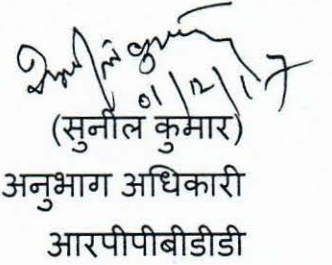 01/12/17
(सुनील कुमार)
अनुभाग अधिकारी
आरपीपीबीडीडी